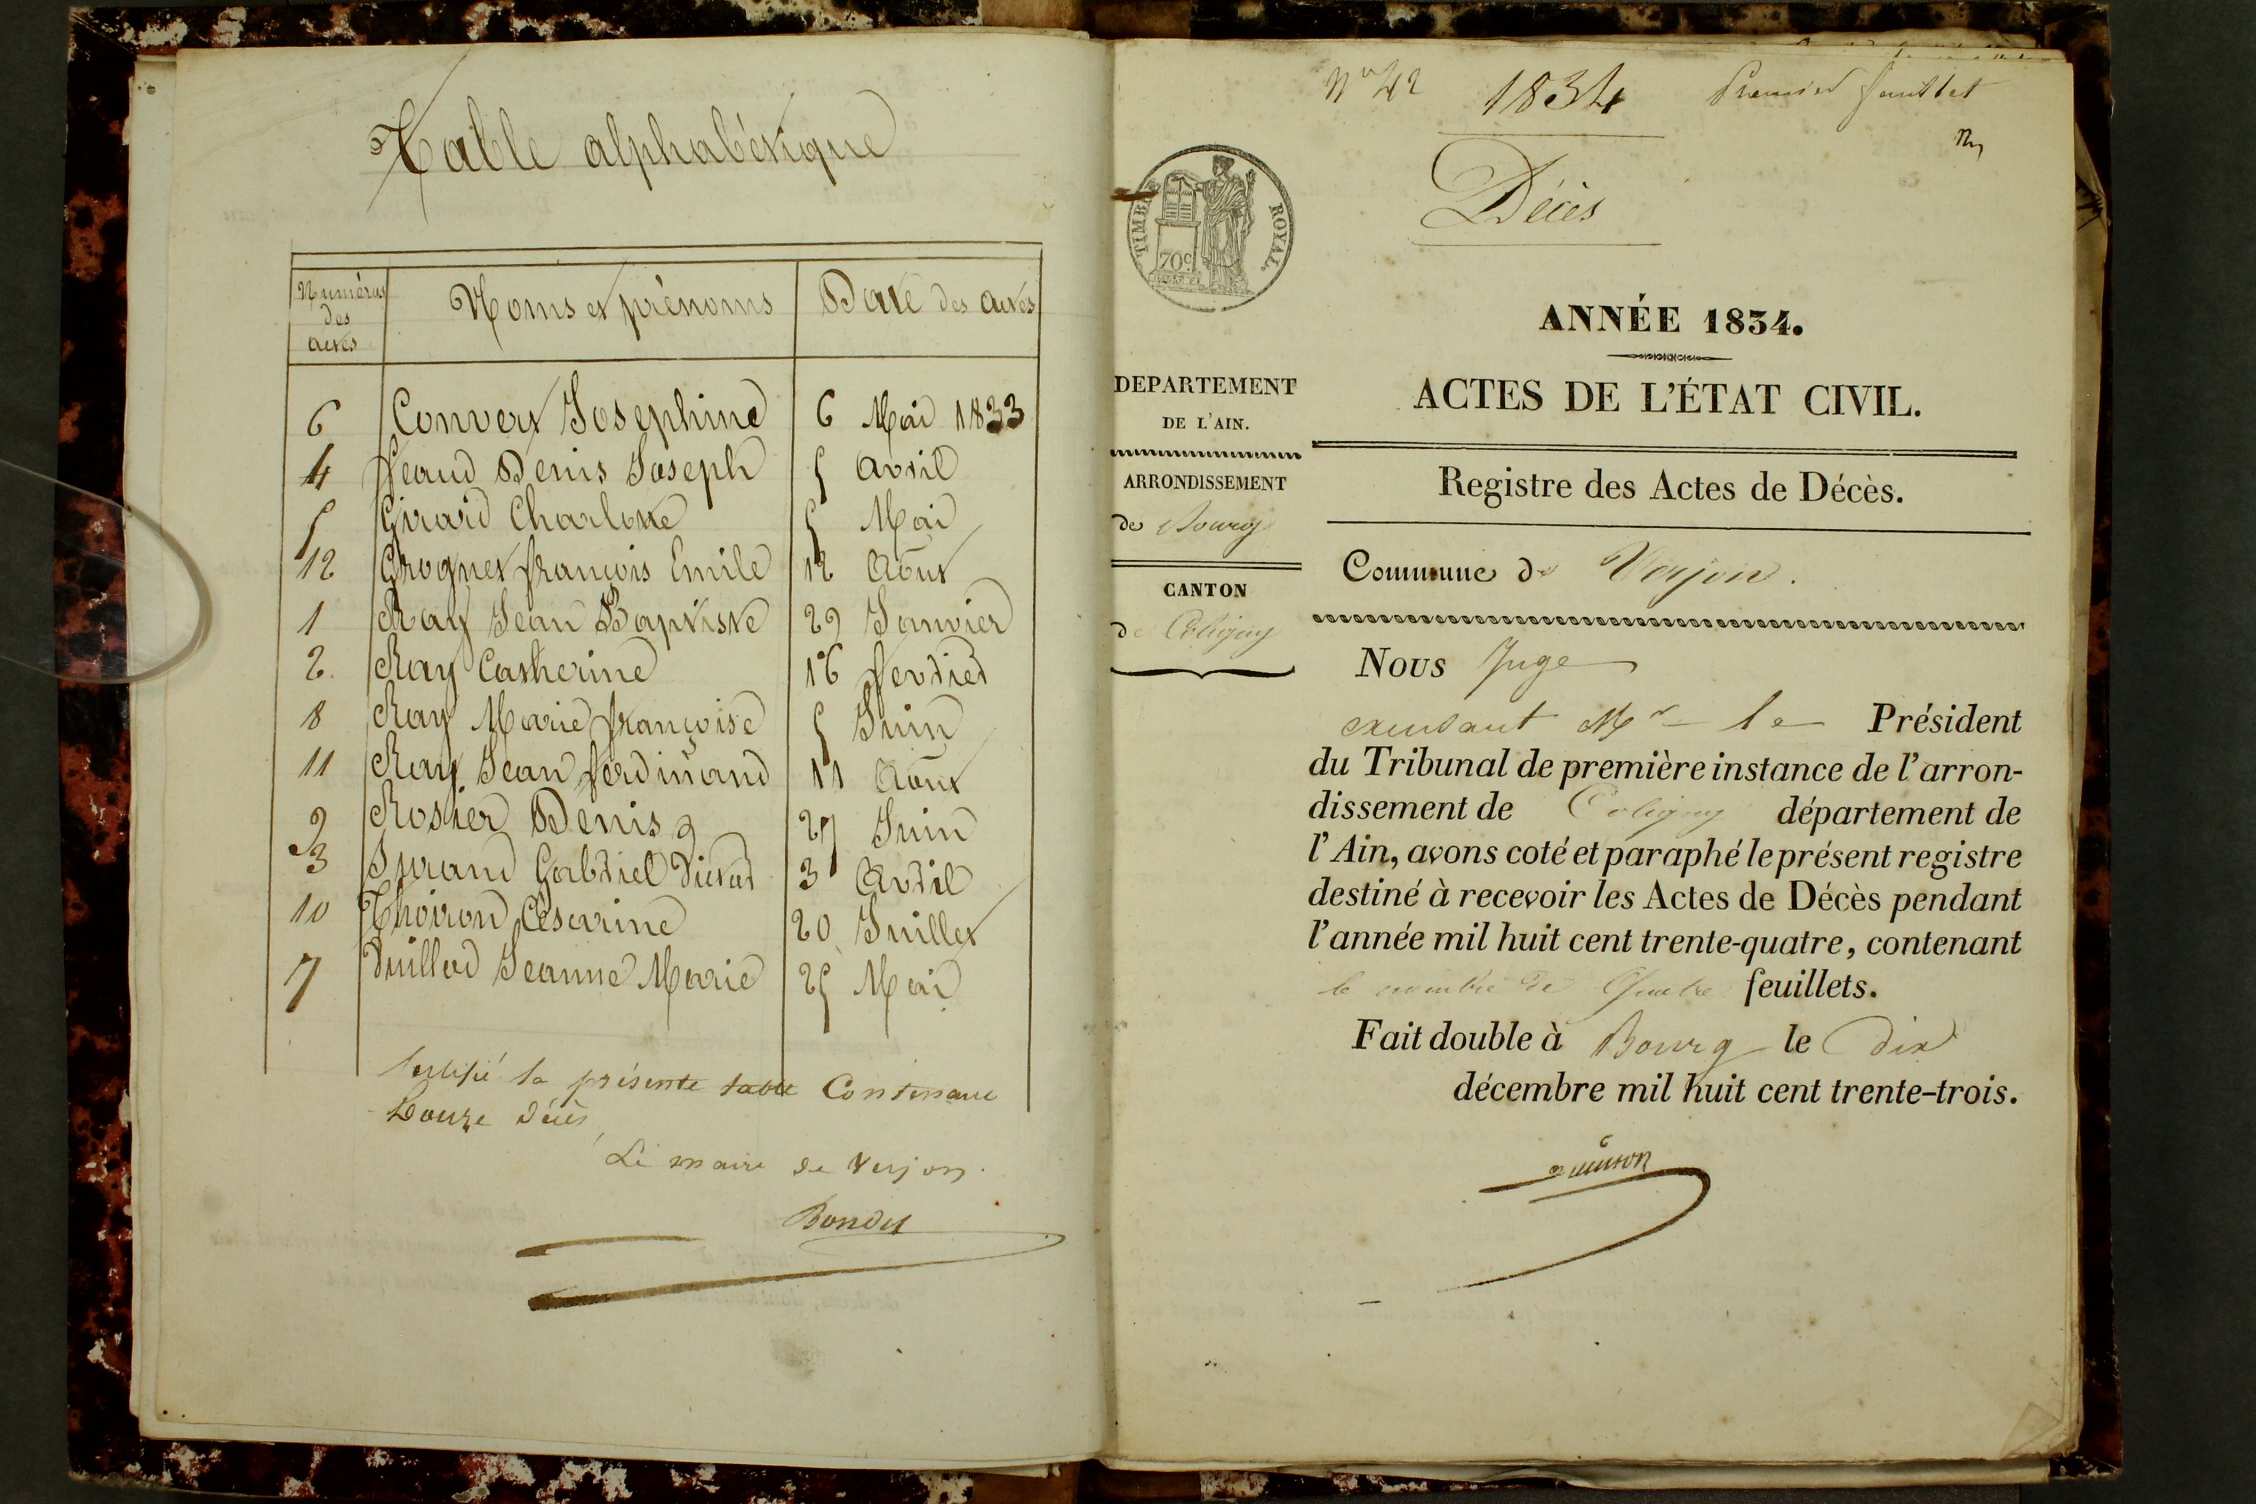 Table alphabétique
Numéros des actes | Noms et prénoms | Date des actes
6 Convert Josephine 6 Mai 1833
4 Feaud Denis Joseph 5 Avril
5 Girard Charlotte 5 Mai
12 Grognet françois Emile 12 Aout
1 Ray Jean Baptiste 29 Janvier
2 Ray Catherine 16 fevrier
8 Ray Marie françoise 5 Juin
11 Ray Jean ferdinand 11 Aout
9 Rosier Denis 27 Juin
3 Gabriel 3 Avril
10 Thoiron Césarine 20 Juillet
7 Vuillod Jeanne Marie 25 Mai
Certifié la présente table Contenant
Douze Décès
Le maire de Verjon
Bondet
No 42 1834 Premier feuillet
Décès
TIMBRE ROYAL.
70c
ANNÉE 1834.
ACTES DE L'ÉTAT CIVIL.
DEPARTEMENT
DE L'AIN.
ARRONDISSEMENT
de Bourg
CANTON
de Coligny
Registre des Actes de Décès.
Commune de Verjon.
Nous Juge
Mr le Président
du Tribunal de première instance de l'arron-
dissement de Coligny département de
l'Ain, avons coté et paraphé le présent registre
destiné à recevoir les Actes de Décès pendant
l'année mil huit cent trente-quatre, contenant
le nombre de Quatre feuillets.
Fait double à Bourg le dix
décembre mil huit cent trente-trois.